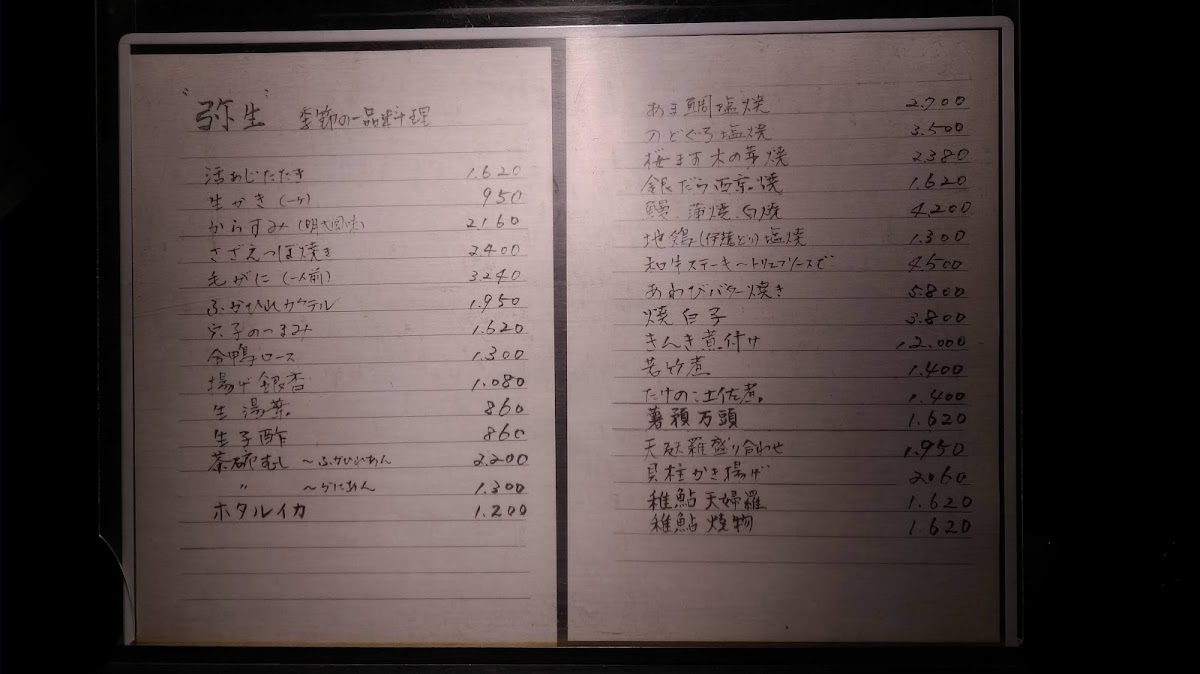 "弥生" 季節の一品料理
活あじたたき 1.620
生かき(一ヶ) 950
からすみ(明太風味) 2160
さざえつぼ焼き 2.400
毛がに(一人前) 3.240
ふかひれカクテル 1.950
穴子のつまみ 1.620
合鴨ロース 1.300
揚げ銀杏 1.080
生湯葉 860
生子酢 860
茶碗むし 〜ふかひれあん 2.200
〃 〜かにあん 1.300
ホタルイカ 1.200
あま鯛塩焼 2.700
のどぐろ塩焼 3.500
桜ます木の芽焼 2.380
銀だら西京焼 1.620
鰻.蒲焼.白焼 4.200
地鶏(伊達どり)塩焼 1.300
和牛ステーキ〜トリュフソースで 4500
あわびバター焼き 5.800
焼白子 3.800
きんき煮付け 12.000
若竹煮 1.400
たけのこ土佐煮 1.400
薯蕷万頭 1.620
天婦羅盛り合わせ 1.950
貝柱かき揚げ 2060
稚鮎天婦羅 1.620
稚鮎焼物 1.620